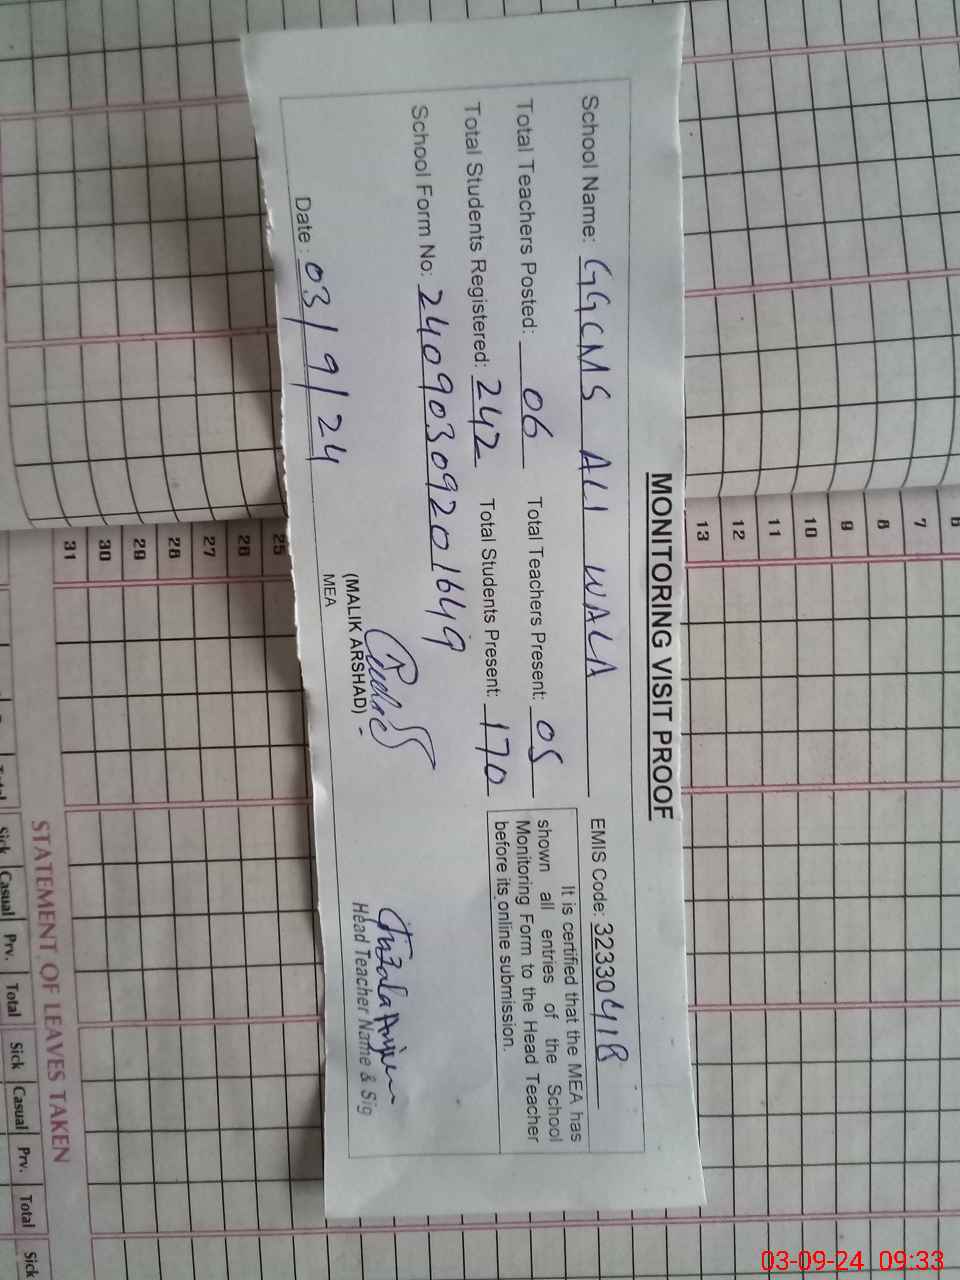 MONITORING VISIT PROOF
School Name: GGCMS ALI WALA EMIS Code: 32330418
Total Teachers Posted: 06 Total Teachers Present: 05
Total Students Registered: 242 Total Students Present: 170
It is certified that the MEA has
shown all entries of the School
Monitoring Form to the Head Teacher
before its online submission.
School Form No: 24090309201649
Date: 03/9/24
(MALIK ARSHAD)
MEA
Head Teacher Name & Sig
6
7
8
9
10
11
12
13
25
26
27
28
29
30
31
STATEMENT OF LEAVES TAKEN
Sick Casual Prv. Total Sick Casual Prv. Total Sick
03-09-24 09:33